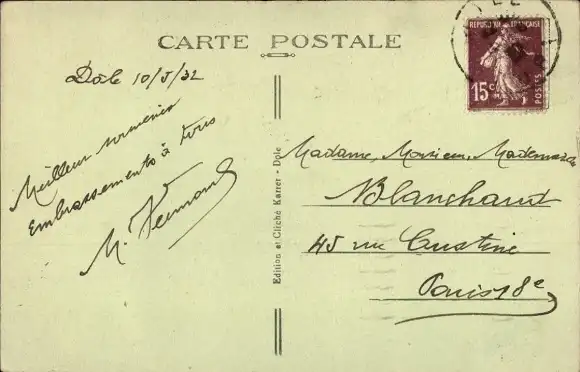 CARTE POSTALE
Dole 10/5/32
Meilleur souvenir
embrassements à tous
M.
REPUBLIQUE FRANÇAISE
15c
POSTES
Edition et Cliché Karrer - Dole
Madame, Monsieur, Mademoiselle
Blanchard
45 rue Custine
Paris 18e